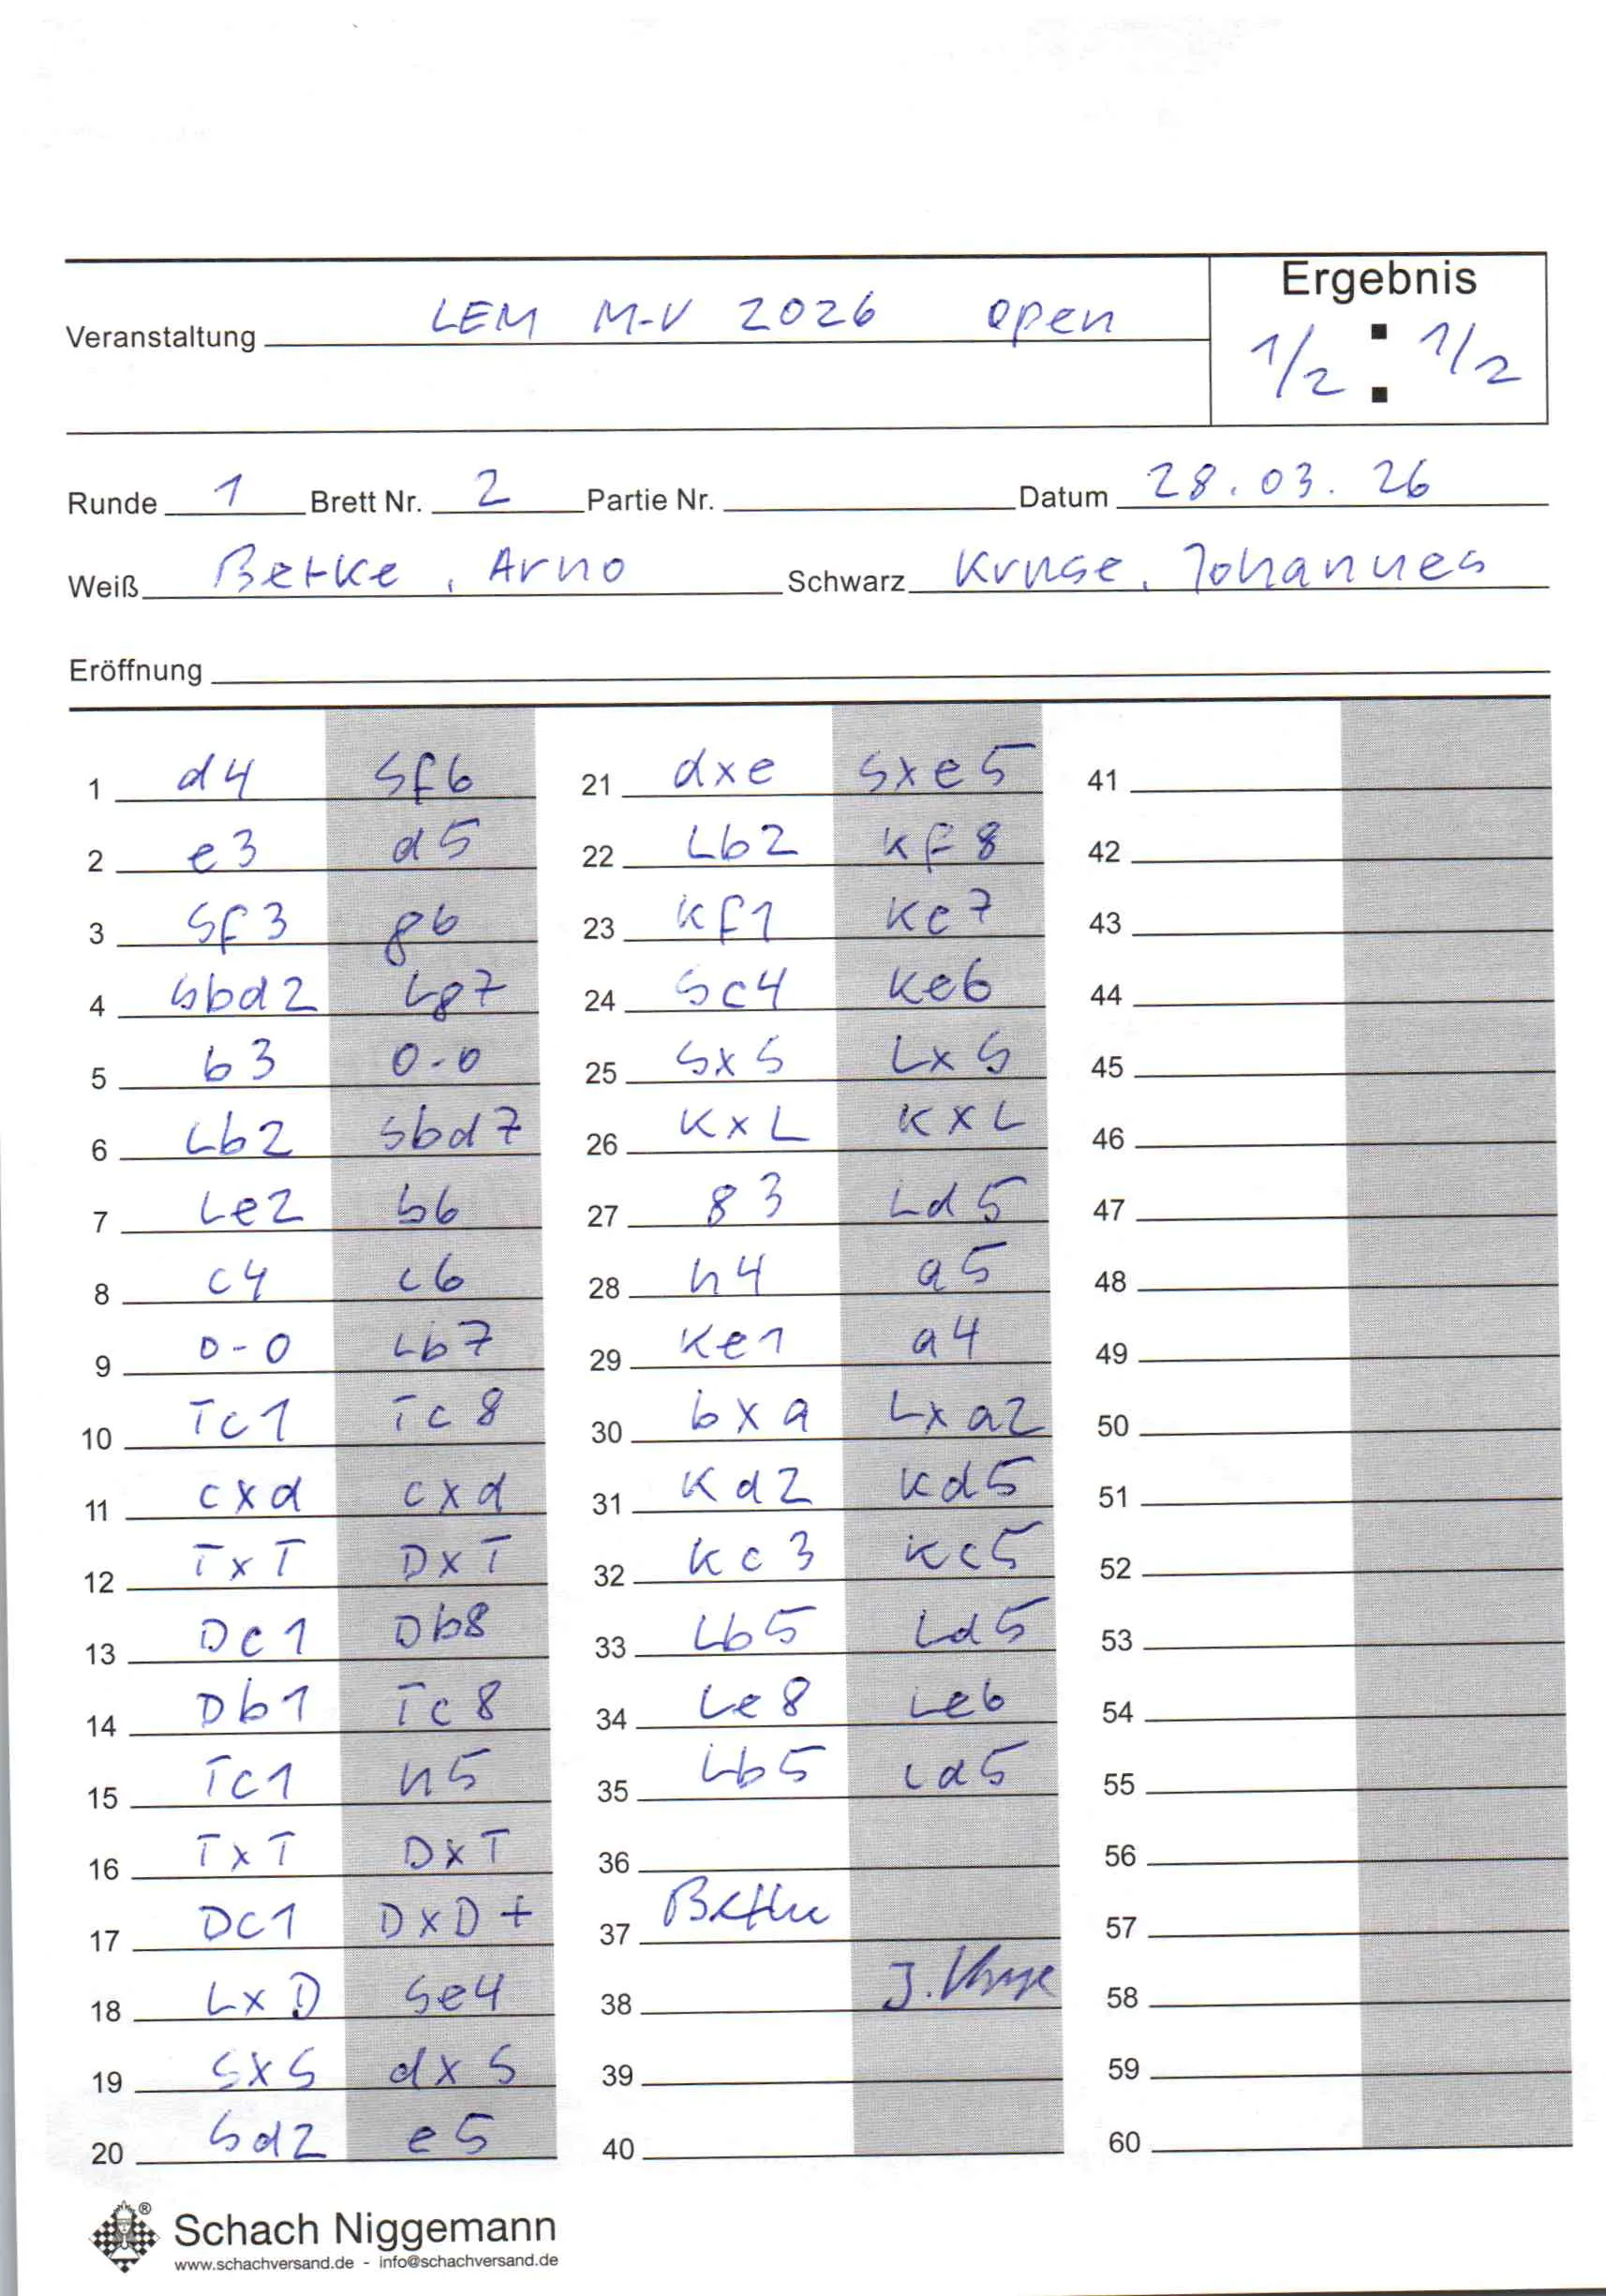 Ergebnis
Veranstaltung LEM M-V 2026 open
1/2 : 1/2
Runde 1 Brett Nr. 2 Partie Nr. Datum 28.03.26
Weiß Betke, Arno Schwarz Kruse, Johannes
Eröffnung
1 d4 Sf6
2 e3 d5
3 Sf3 g6
4 Sbd2 Lg7
5 b3 0-0
6 Lb2 Sbd7
7 Le2 b6
8 c4 c6
9 0-0 Lb7
10 Tc1 Tc8
11 cxd cxd
12 TxT DxT
13 Dc1 Db8
14 Db1 Tc8
15 Tc1 h5
16 TxT DxT
17 DC1 DxD+
18 LxD Se4
19 SxS dxS
20 Sd2 e5
21 dxe Sxe5
22 Lb2 Kf8
23 Kf1 Ke7
24 Sc4 Ke6
25 SxS LxS
26 KxL KxL
27 g3 Ld5
28 h4 a5
29 Ke1 a4
30 bxa Lxa2
31 Kd2 Kd5
32 Kc3 Kc5
33 Lb5 Ld5
34 Le8 Le6
35 Lb5 Ld5
36
37
38
39
40
41
42
43
44
45
46
47
48
49
50
51
52
53
54
55
56
57
58
59
60
Schach Niggemann
www.schachversand.de - info@schachversand.de